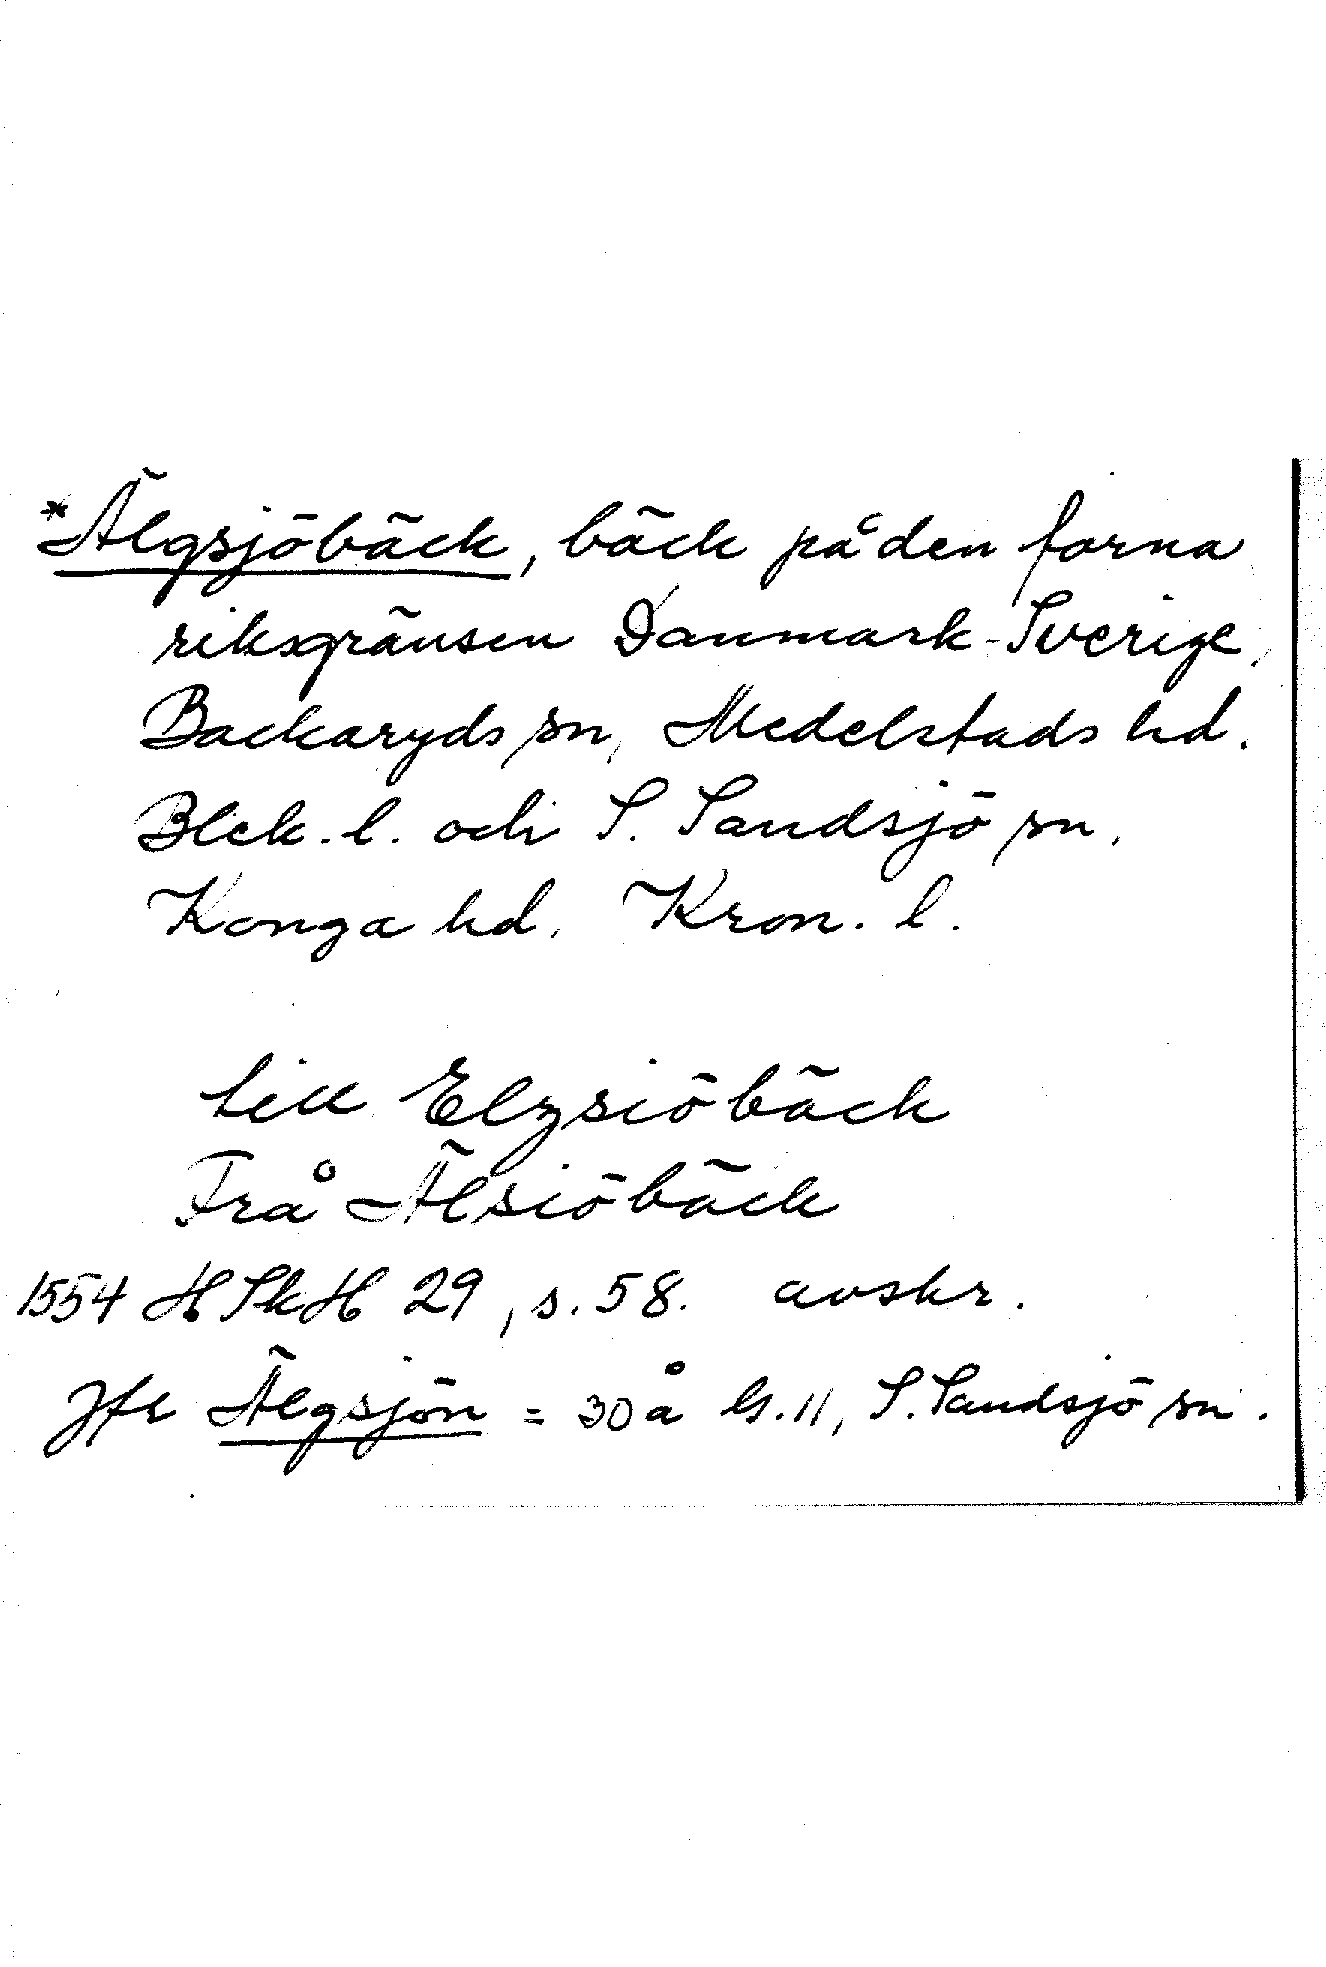 *Älgsjöbäck, bäck på den forna
riksgränsen Danmark-Sverige,
Backaryds sn, Medelstads hd.
Blek. l. och S. Sandsjö sn,
Konga hd. Kron. l.
till Elgsiöbäck
Frå Älsiöbäck
1554 HSkH 29, s. 58. avskr.
Jfr Älgsjön = 30 å bl. 11, S. Sandsjö sn.